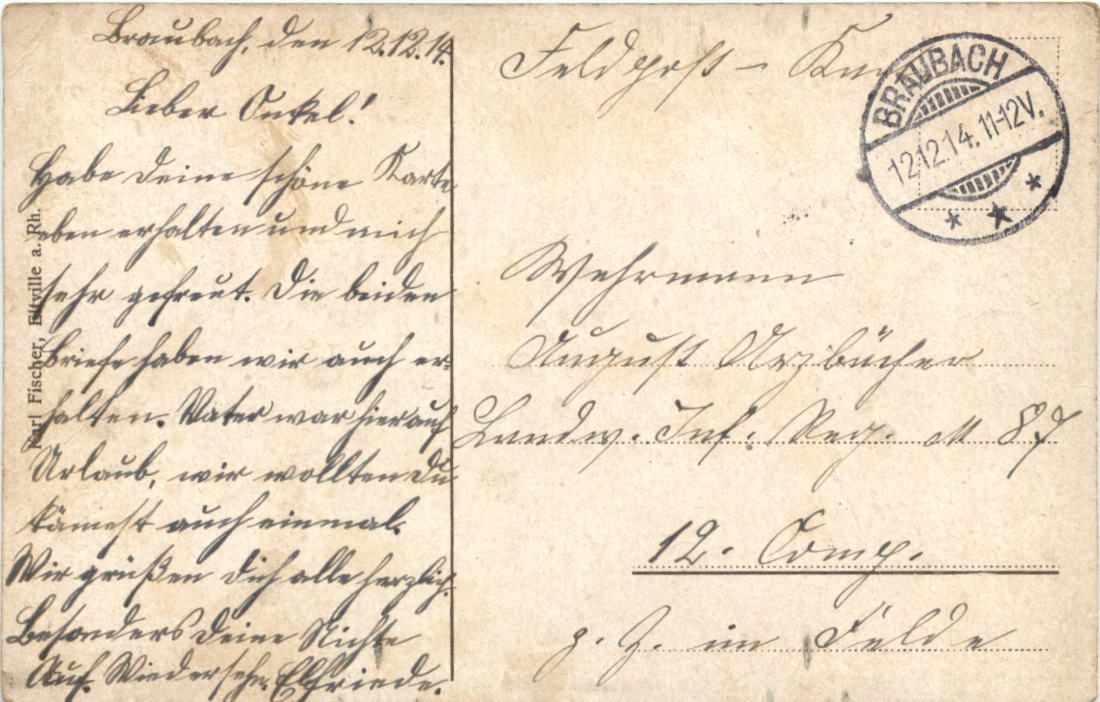 Braubach, den 12.12.14.
Lieber Onkel!
Habe Deine schöne Karte
eben erhalten und mich
sehr gefreut. Die beiden
Briefe haben wir auch er-
halten. Vater war hier auf
Urlaub, wir wollten Du
kämest auch einmal.
Wir grüßen Dich alle herzlich.
Besonders Deine Nichte
Auf Wiedersehn. Elfriede.
Karl Fischer, Eltville a. Rh.
Feldpost-
BRAUBACH
12.12.14. 11-12V.
Wehrmann
August Arzbächer
Landw. Inf. Reg. № 87
12. Comp.
z. Z. im Felde